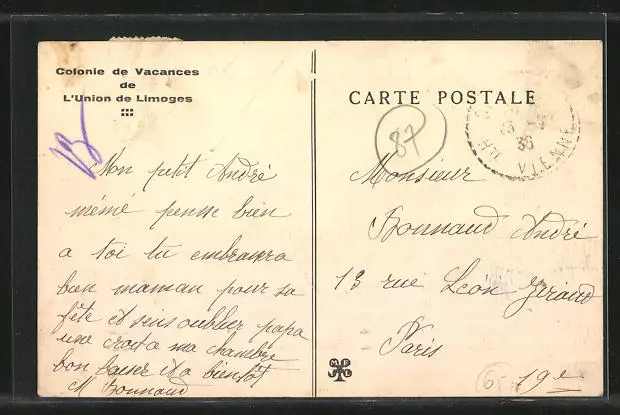 Colonie de Vacances
de
L'Union de Limoges
CARTE POSTALE
87
HTE VIENNE
36
Mon petit André
mémé pense bien
a toi tu embrasera
bien maman pour sa
fête et sins oublier papa
une crosta ma chambre
bon baiser et a bientôt
M Bonnaud
Monsieur
Bonnaud André
13 rue Léon Giraud
Paris
19e